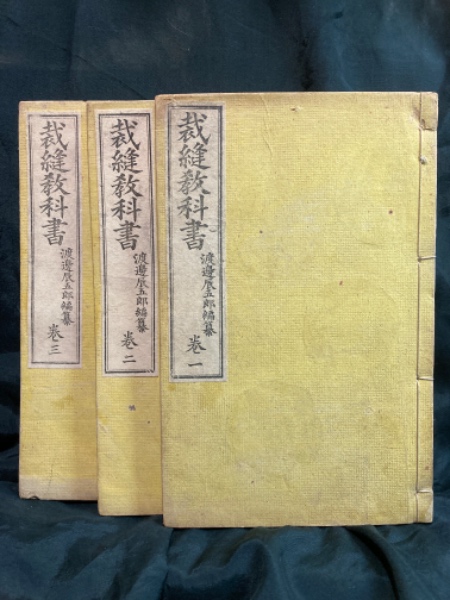 裁縫敎科書
渡邊辰五郎編纂
卷一
裁縫敎科書
渡邊辰五郎編纂
卷二
裁縫敎科書
渡邊辰五郎編纂
卷三